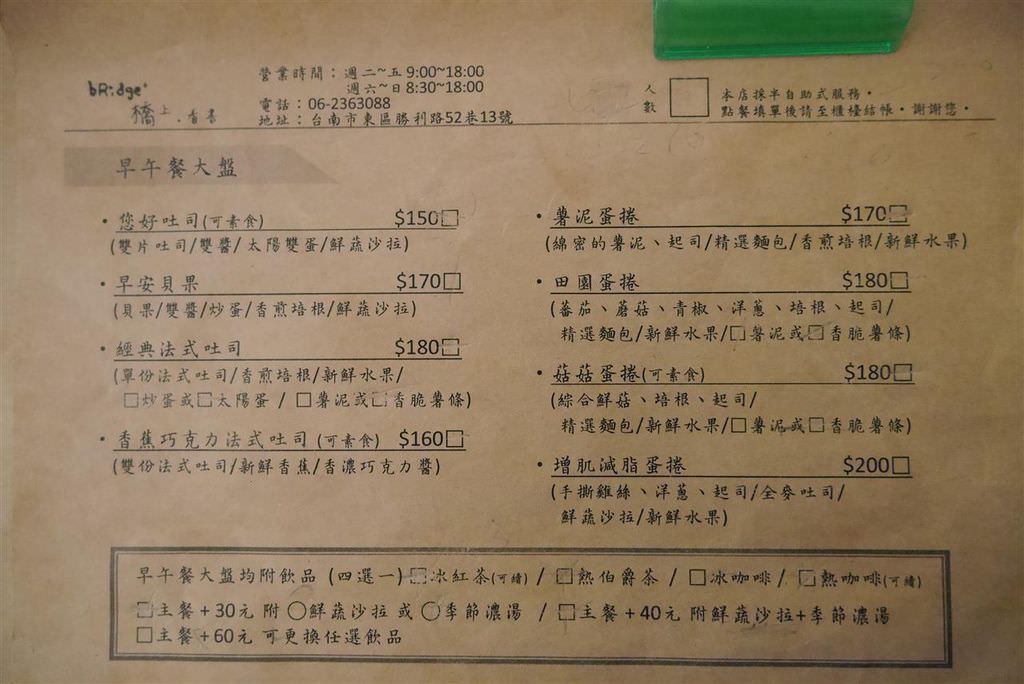 bRidge+
橋上.看書
營業時間：週二~五 9:00~18:00
週六~日 8:30~18:00
電話：06-2363088
地址：台南市東區勝利路52巷13號
人數 □
本店採半自助式服務。
點餐填單後請至櫃檯結帳。謝謝您。
早午餐大盤
• 您好吐司(可素食) $150□
(雙片吐司/雙醬/太陽雙蛋/鮮蔬沙拉)
• 早安貝果 $170□
(貝果/雙醬/炒蛋/香煎培根/鮮蔬沙拉)
• 經典法式吐司 $180□
(單份法式吐司/香煎培根/新鮮水果/
□炒蛋或□太陽蛋 / □薯泥或□香脆薯條)
• 香蕉巧克力法式吐司 (可素食) $160□
(雙份法式吐司/新鮮香蕉/香濃巧克力醬)
• 薯泥蛋捲 $170□
(綿密的薯泥、起司/精選麵包/香煎培根/新鮮水果)
• 田園蛋捲 $180□
(蕃茄、蘑菇、青椒、洋蔥、培根、起司/
精選麵包/新鮮水果/□薯泥或□香脆薯條)
• 菇菇蛋捲(可素食) $180□
(綜合鮮菇、培根、起司/
精選麵包/新鮮水果/□薯泥或□香脆薯條)
• 增肌減脂蛋捲 $200□
(手撕雞絲、洋蔥、起司/全麥吐司/
鮮蔬沙拉/新鮮水果)
早午餐大盤均附飲品 (四選一)□冰紅茶(可續) / □熱伯爵茶 / □冰咖啡 / □熱咖啡(可續)
□主餐+30元 附 ○鮮蔬沙拉 或 ○季節濃湯 / □主餐+40元 附鮮蔬沙拉+季節濃湯
□主餐+60元 可更換任選飲品